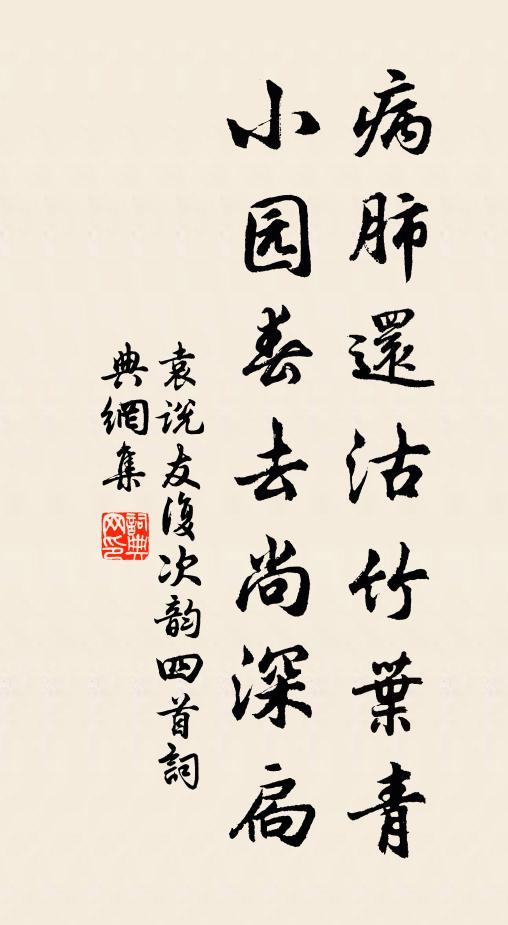 病肺還沽竹葉青
小园春去尚深扃
袁说友復次韵四首詞
典網集
詞典网印